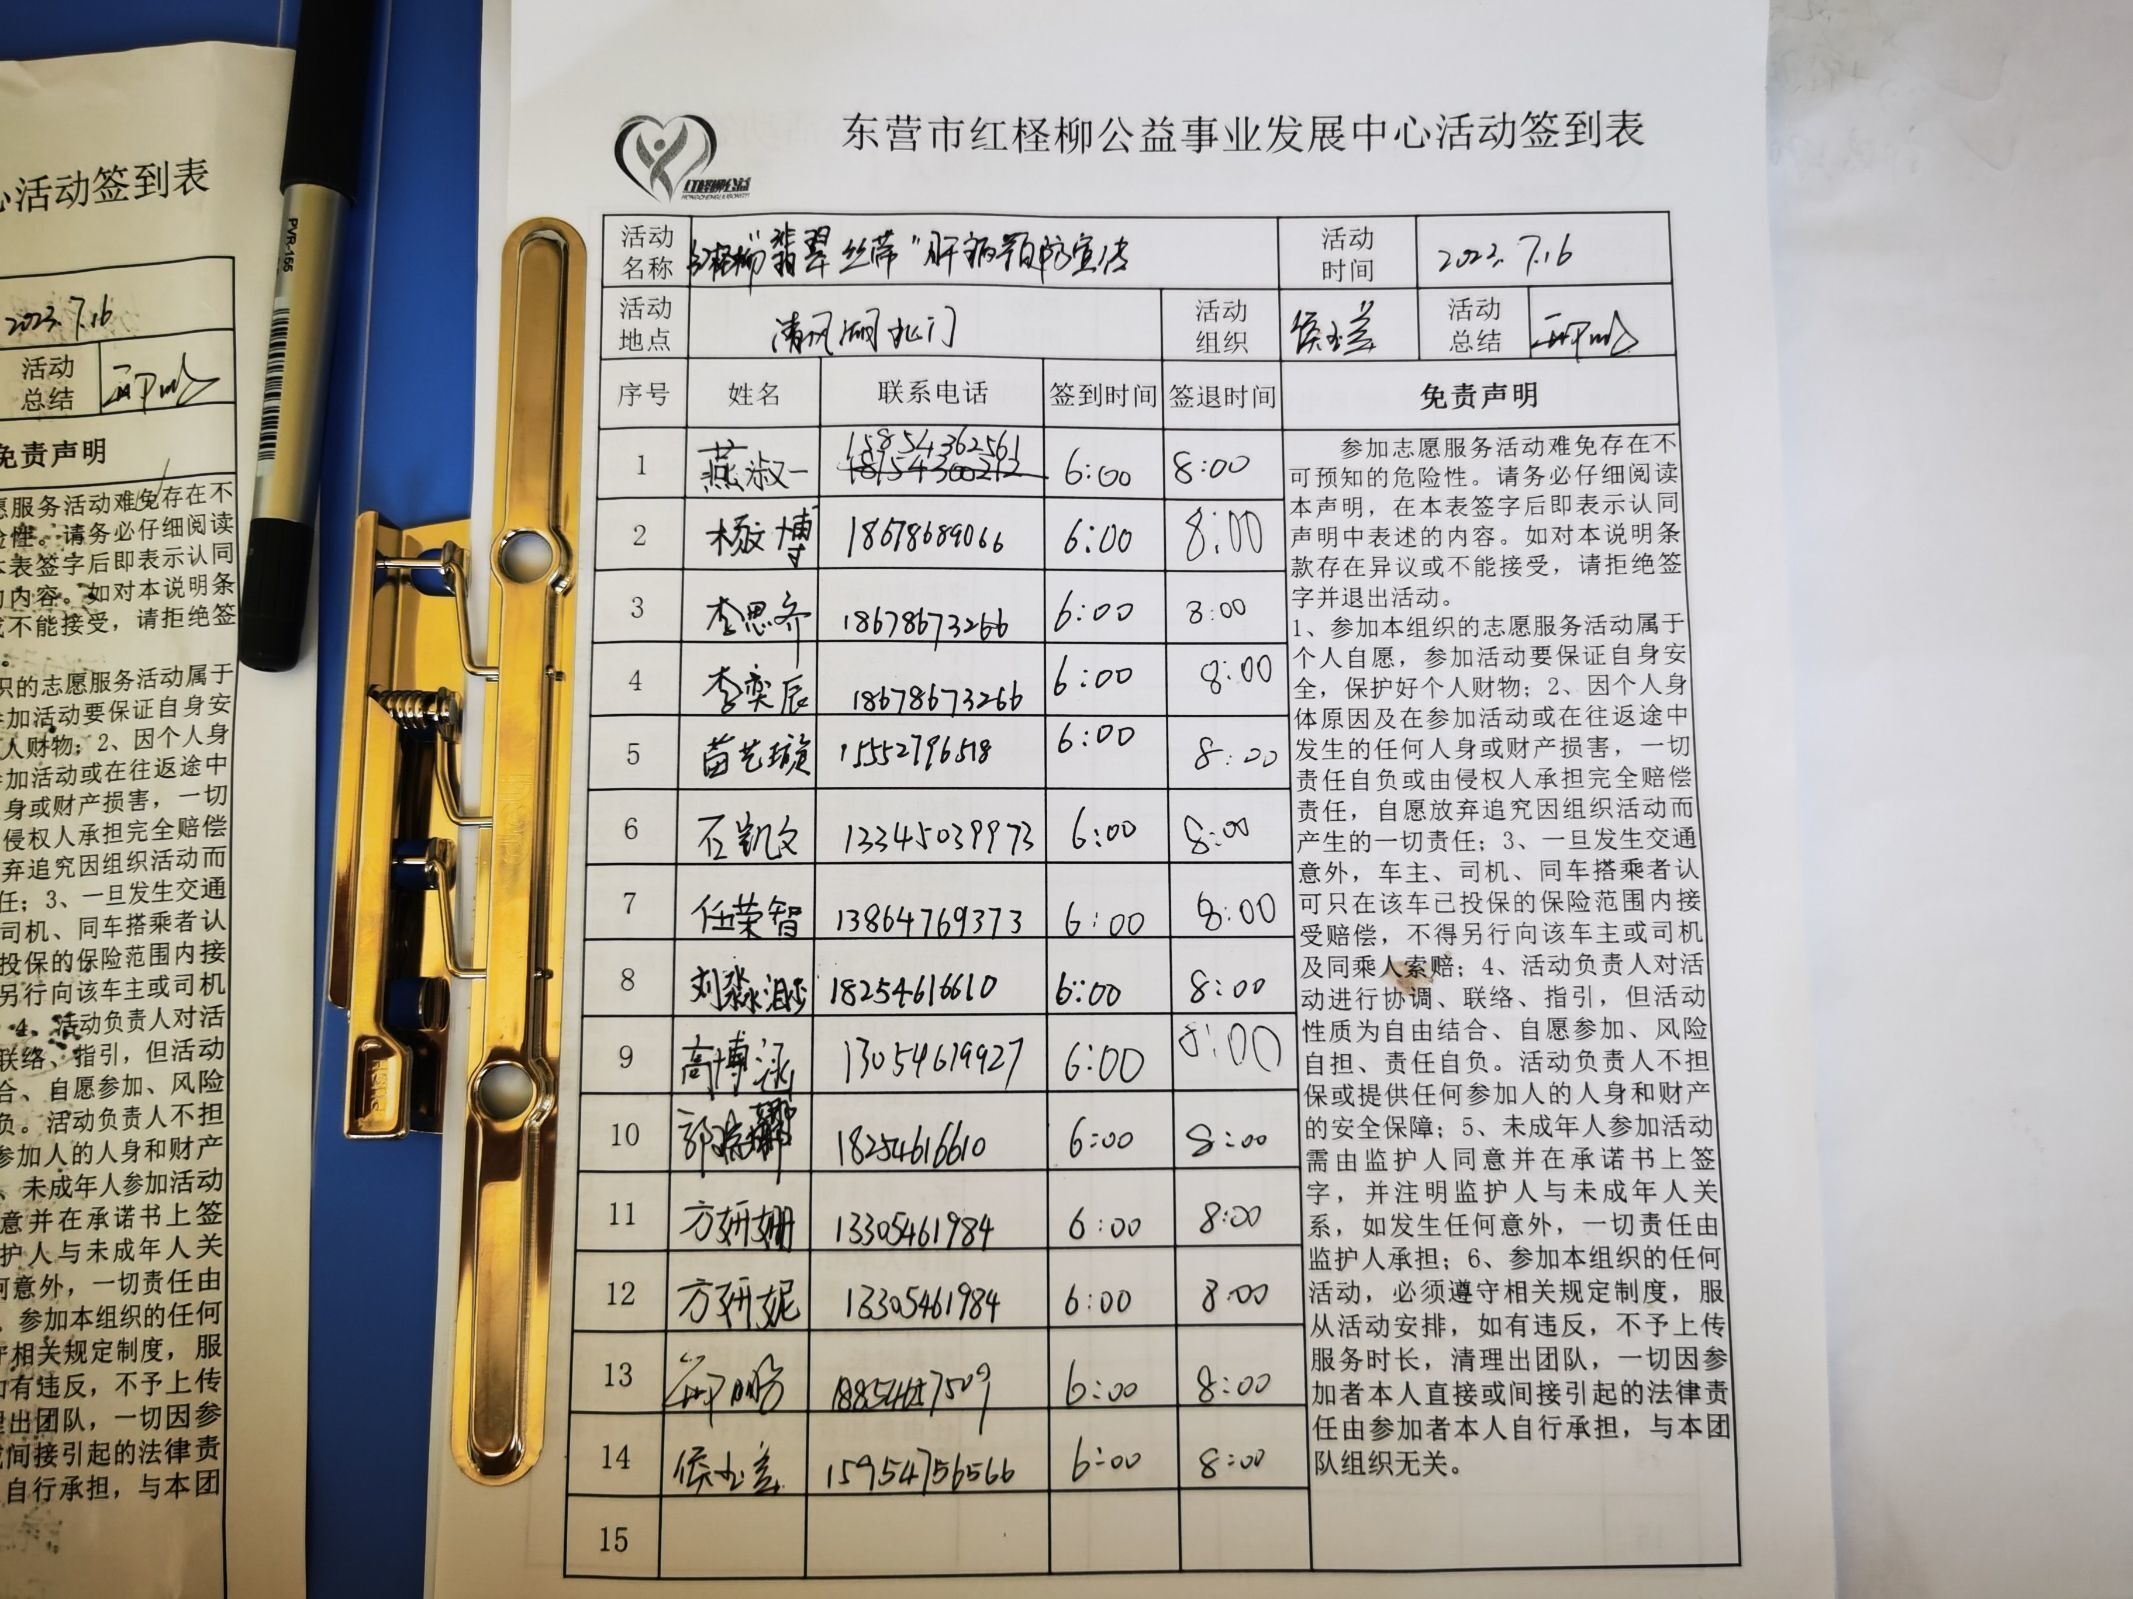 东营市红柽柳公益事业发展中心活动签到表
红柽柳公益
HONGCHENGLIUGONGYI
活动名称 红柽柳“翡翠丝带”肝病预防宣传 活动时间 2023.7.16
活动地点 清风湖北门 活动组织 侯玉兰 活动总结
序号 姓名 联系电话 签到时间 签退时间 免责声明
1 燕淑一 15854362561 6:00 8:00
2 杨文博 18678689066 6:00 8:00
3 李思齐 18678673266 6:00 8:00
4 李奕辰 18678673266 6:00 8:00
5 苗艺璇 15552796518 6:00 8:00
6 石凯文 13345039973 6:00 8:00
7 任荣智 13864769373 6:00 8:00
8 刘淼 18254616610 6:00 8:00
9 高博泳 13054619927 6:00 8:00
10 郭 18254616610 6:00 8:00
11 方妍姗 13305461984 6:00 8:00
12 方妍妮 13305461984 6:00 8:00
13 6:00 8:00
14 侯玉兰 15954756566 6:00 8:00
15
参加志愿服务活动难免存在不
可预知的危险性。请务必仔细阅读
本声明，在本表签字后即表示认同
声明中表述的内容。如对本说明条
款存在异议或不能接受，请拒绝签
字并退出活动。
1、参加本组织的志愿服务活动属于
个人自愿，参加活动要保证自身安
全，保护好个人财物；2、因个人身
体原因及在参加活动或在往返途中
发生的任何人身或财产损害，一切
责任自负或由侵权人承担完全赔偿
责任，自愿放弃追究因组织活动而
产生的一切责任；3、一旦发生交通
意外，车主、司机、同车搭乘者认
可只在该车已投保的保险范围内接
受赔偿，不得另行向该车主或司机
及同乘人索赔；4、活动负责人对活
动进行协调、联络、指引，但活动
性质为自由结合、自愿参加、风险
自担、责任自负。活动负责人不担
保或提供任何参加人的人身和财产
的安全保障；5、未成年人参加活动
需由监护人同意并在承诺书上签
字，并注明监护人与未成年人关
系，如发生任何意外，一切责任由
监护人承担；6、参加本组织的任何
活动，必须遵守相关规定制度，服
从活动安排，如有违反，不予上传
服务时长，清理出团队，一切因参
加者本人直接或间接引起的法律责
任由参加者本人自行承担，与本团
队组织无关。
心活动签到表
2023.7.16
活动总结
免责声明
愿服务活动难免存在不
险性。请务必仔细阅读
本表签字后即表示认同
的内容。如对本说明条
或不能接受，请拒绝签
织的志愿服务活动属于
参加活动要保证自身安
人财物；2、因个人身
参加活动或在往返途中
身或财产损害，一切
侵权人承担完全赔偿
弃追究因组织活动而
任；3、一旦发生交通
司机、同车搭乘者认
投保的保险范围内接
另行向该车主或司机
4、活动负责人对活
联络、指引，但活动
合、自愿参加、风险
负。活动负责人不担
参加人的人身和财产
、未成年人参加活动
意并在承诺书上签
护人与未成年人关
何意外，一切责任由
参加本组织的任何
守相关规定制度，服
如有违反，不予上传
理出团队，一切因参
或间接引起的法律责
自行承担，与本团
PVR-155
PUSH